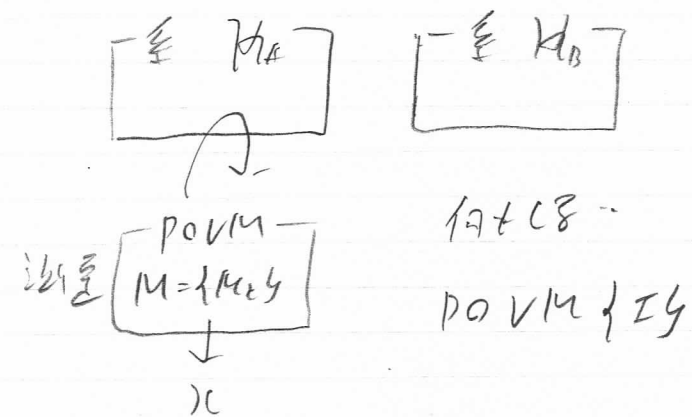 系 H_A
系 H_B
POVM
測定 M={M_x}
x
何もしない
POVM {I}